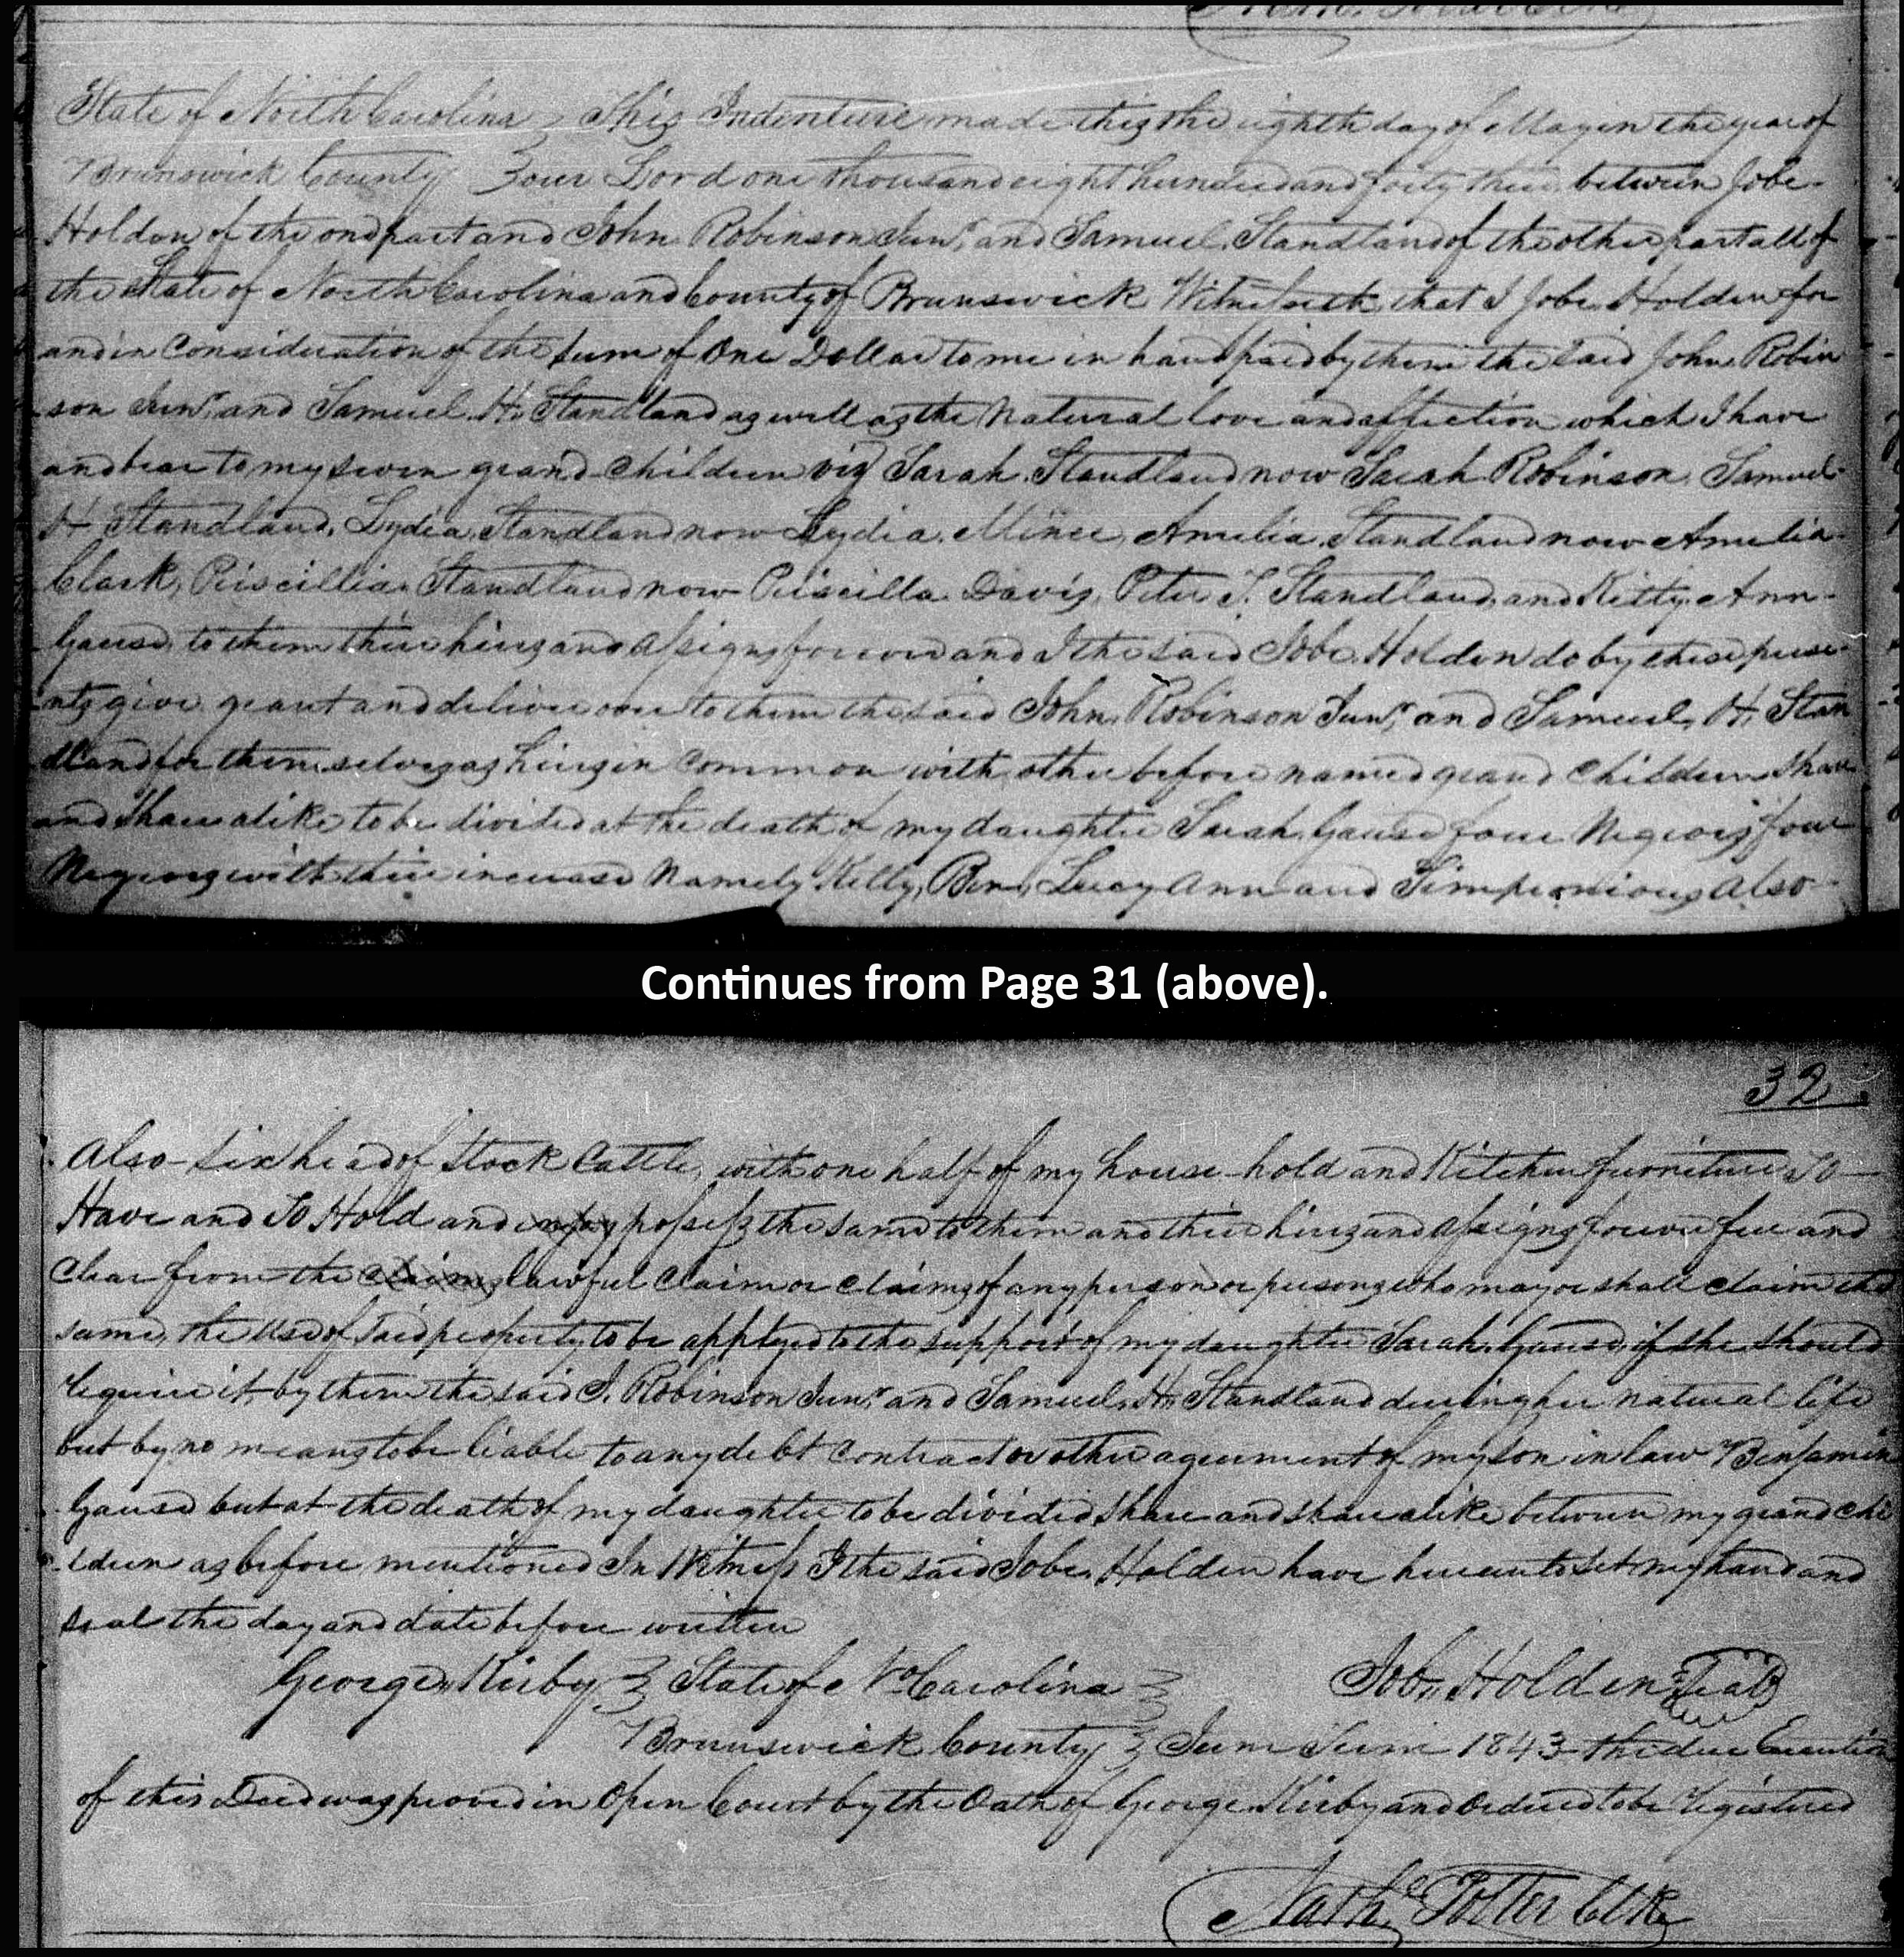 State of North Carolina } This Indenture made this the eighth day of May in the year of
Brunswick County } our Lord one thousand eight hundred and forty three between Jobe
Holden of the one part and John Robinson Junr. and Samuel Standland of the other part all of
the State of North Carolina and County of Brunswick Witnesseth that I Jobe Holden for
and in Consideration of the sum of One Dollar to me in hand paid by them the said John Robin
son Junr. and Samuel H. Standland as well as the Natural love and affection which I have
and bear to my seven grand Children viz Sarah Standland now Sarah Robinson Samuel
H Standland, Lydia Standland now Lydia Mince, Amelia Standland now Amelia
Clark, Priscillia Standland now Priscilla Davis, Peter S. Standland, and Kitty Ann
Gause, to them their heirs and assigns forever and I the said Jobe Holden do by these prese
nts give grant and deliver over to them the said John Robinson Junr. and Samuel H. Stan
dland for them selves as heirs in Common with other before named grand Children Share
and Share alike to be divided at the death of my daughter Sarah Gause four Negroes four
Negroes with their increase Namely Kelly, Ben, Lucy Ann and Simpronious also
32
Also six head of Stock Cattle, with one half of my house hold and Kitchen furniture To
Have and To Hold and enjoy possess the same to them and their heirs and assigns forever free and
Clear from the claims lawful Claim or claims of any person or persons who may or shall claim the
same, the use of said property to be applyed to the support of my daughter Sarah Gause, if she should
require it, by them the said J. Robinson Junr. and Samuel H. Standland during her natural life
but by no means to be liable to any debt contract or other agreement of my son in law Benjamin
Gause but at the death of my daughter to be divided share and share alike between my grand chi
ldren as before mentioned In Witness I the said Jobe Holden have hereunto set my hand and
seal the day and date before written
George Kirby } State of No. Carolina } Job Holden Seal
Brunswick County } June Term 1843 the due Execution
of this Deed was proved in Open Court by the Oath of George Kirby and Ordered to be registered
Nathl. Potter Clk
Continues from Page 31 (above).